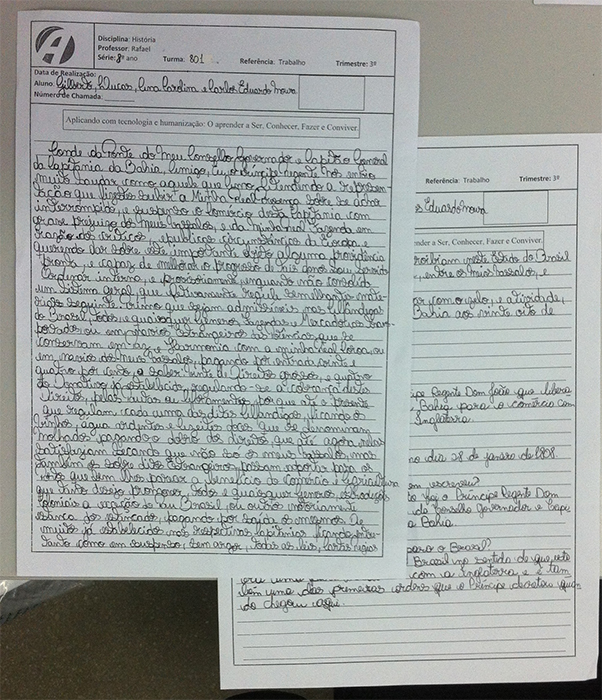 Disciplina: História
Professor: Rafael
Série: 8º ano Turma: 801 Referência: Trabalho Trimestre: 3º
Data de Realização:
Aluno: Gilberto, Lucas, Ana Carolina e Carlos Eduardo Moura
Número de Chamada:
Aplicando com tecnologia e humanização: O aprender a Ser, Conhecer, Fazer e Conviver.
Conde da Ponte do meu Conselho Governador e Capitão General
da Capitania da Bahia, Amigo, Eu o Príncipe Regente vos envio
muito saudar, como aquele que amo. Atendendo a represen
tação que fizestes subir a Minha Real presença sobre se achar
interrompido, e suspenso o comércio desta Capitania com
grave prejuízo dos meus vassalos, e da minha Real Fazenda em
razão das críticas, e públicas circunstâncias da Europa, e
querendo dar sobre este importante objeto alguma providência
pronta, e capaz de melhorar o progresso de tais danos sou servido
Ordenar interina, e provisoriamente enquanto não consolido
um sistema geral, que efetivamente regule semelhantes maté
rias o seguinte. Primo que sejam admissíveis nas Alfândegas
do Brasil todos, e quaisquer Gêneros, Fazendas, e Mercadorias trans
portadas, ou em navios estrangeiros das Potências que se
conservam em Paz, e Harmonia com a minha real Coroa, ou
em navios dos meus vassalos, pagando por entrada vinte e
quatro por cento, a saber: vinte de Direitos grossos, e quatro
do Donativo já estabelecido, regulando-se a cobrança destes
Direitos, pelas pautas ou aforamentos, por que até o presente
que regulam cada uma das ditas Alfândegas, ficando os
vinhos, água ardentes e azeites doces que se denominam
molhados pagando o dobro dos direitos, que até agora, nelas
satisfaziam. Secundo que não só os meus vassalos, mas
também os sobre ditos Estrangeiros possam exportar para os
Portos que bem lhes parecer a benefício do comércio e Agricultura
que tanto desejo promover, todos e quaisquer Gêneros e Produções
Coloniais a exceção do Pau Brasil, ou outros notoriamente
estancados, pagando por saída os mesmos Di
reitos já estabelecidos nas respectivas capitanias, ficando entre
tanto como em suspenso, e sem vigor, todas as leis, cartas régias
Referência: Trabalho Trimestre: 3º
Eduardo Moura
nder a Ser, Conhecer, Fazer e Conviver.
proibiam neste Estado do Brasil
entre os meus vassalos, e
com o zelo, e atividade,
Bahia aos vinte oito de
Regente Dom João que libera
Bahia para o comércio com
Inglaterra.
no dia 28 de janeiro de 1808.
em escreveu?
o Príncipe Regente Dom
do Conselho Governador e Capi
a Bahia
para o Brasil?
Brasil no sentido de que este
com a Inglaterra, e é tam
bém uma das primeiras ordens que o Príncipe decretou quan
do chegou aqui.